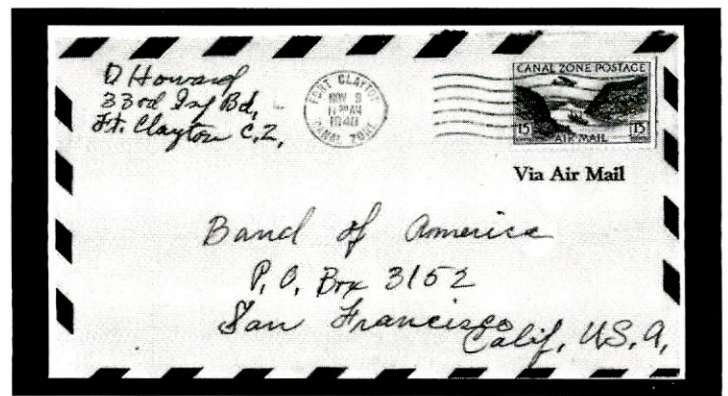 D Howard
33rd Inf Bd,
Ft. Clayton C.Z.
FORT CLAYTON
NOV 9
11 30 AM
1940
CANAL ZONE
CANAL ZONE POSTAGE
15 15
AIR MAIL
Via Air Mail
Band of America
P.O. Box 3152
San Francisco
Calif, U.S.A,